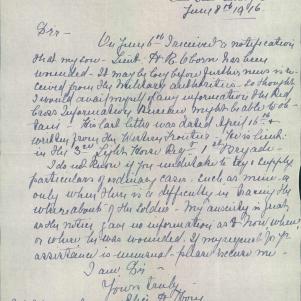 June 8th 1916
Sir -
On June 6th I received a notification
that my son - Lieut. H. C. Oborn has been
wounded - It may be long before further news is re-
ceived from the Military authorities - so thought
I would avail myself of any information the Red
Cross Information Bureau might be able to ob-
tain - His last letter was dated April 16th &
written from the
He is Lieut.
in the 3rd Light Horse Regt 1st Brigade -
I do not know if you undertake to try & supply
particulars of ordinary cases such as mine or
only when there is a difficulty in tracing the
whereabouts of the Soldier - My anxiety is great
as the notice gives no information as to how, when
or where he was wounded. If my request for yr
assistance is unusual - please excuse me -
I am Sir -
Yours truly